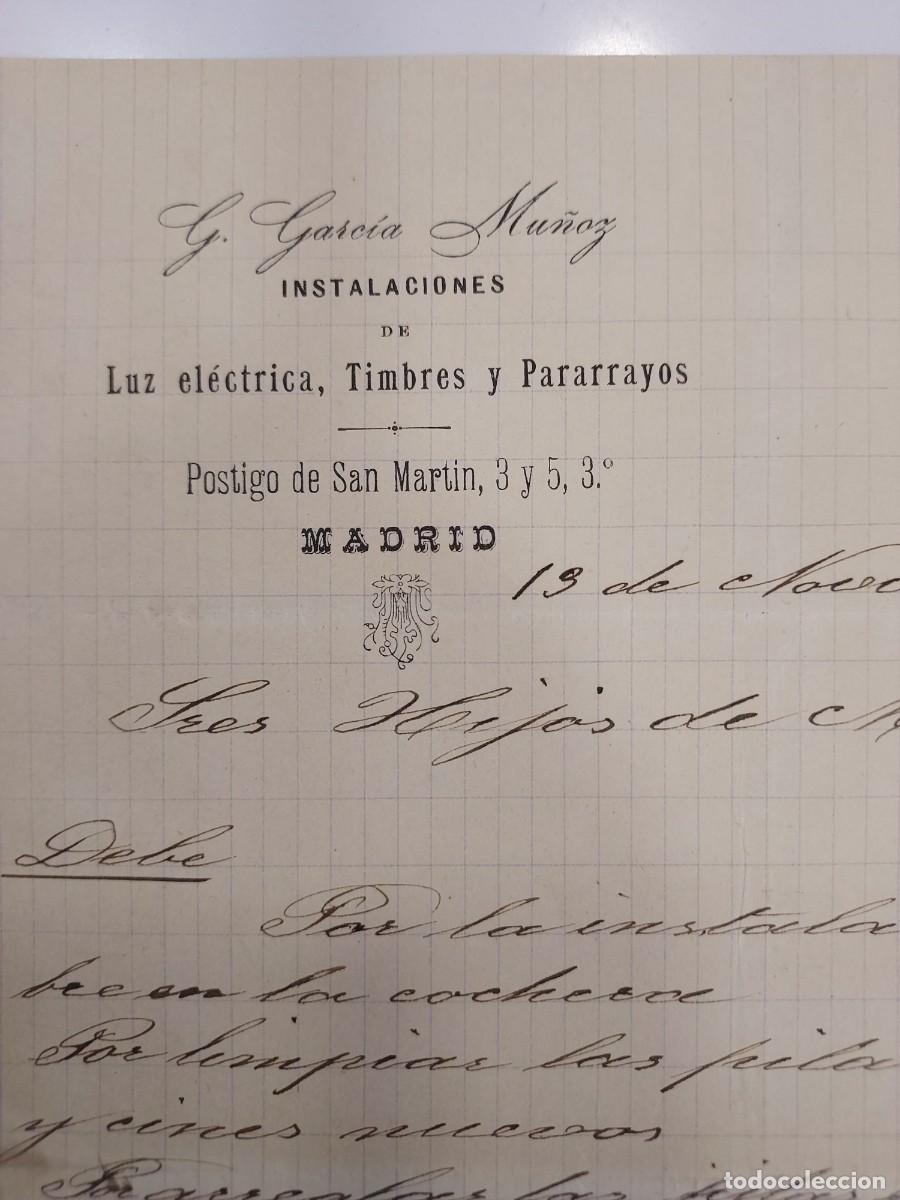 G. García Muñoz
INSTALACIONES
DE
Luz eléctrica, Timbres y Pararrayos
Postigo de San Martin, 3 y 5, 3.º
MADRID
19 de Nov
Sres Hijos de M
Debe
Por la instala
bre en la cochera
Por limpiar las pila
y cines nuevos
Por arreglar las
todocoleccion